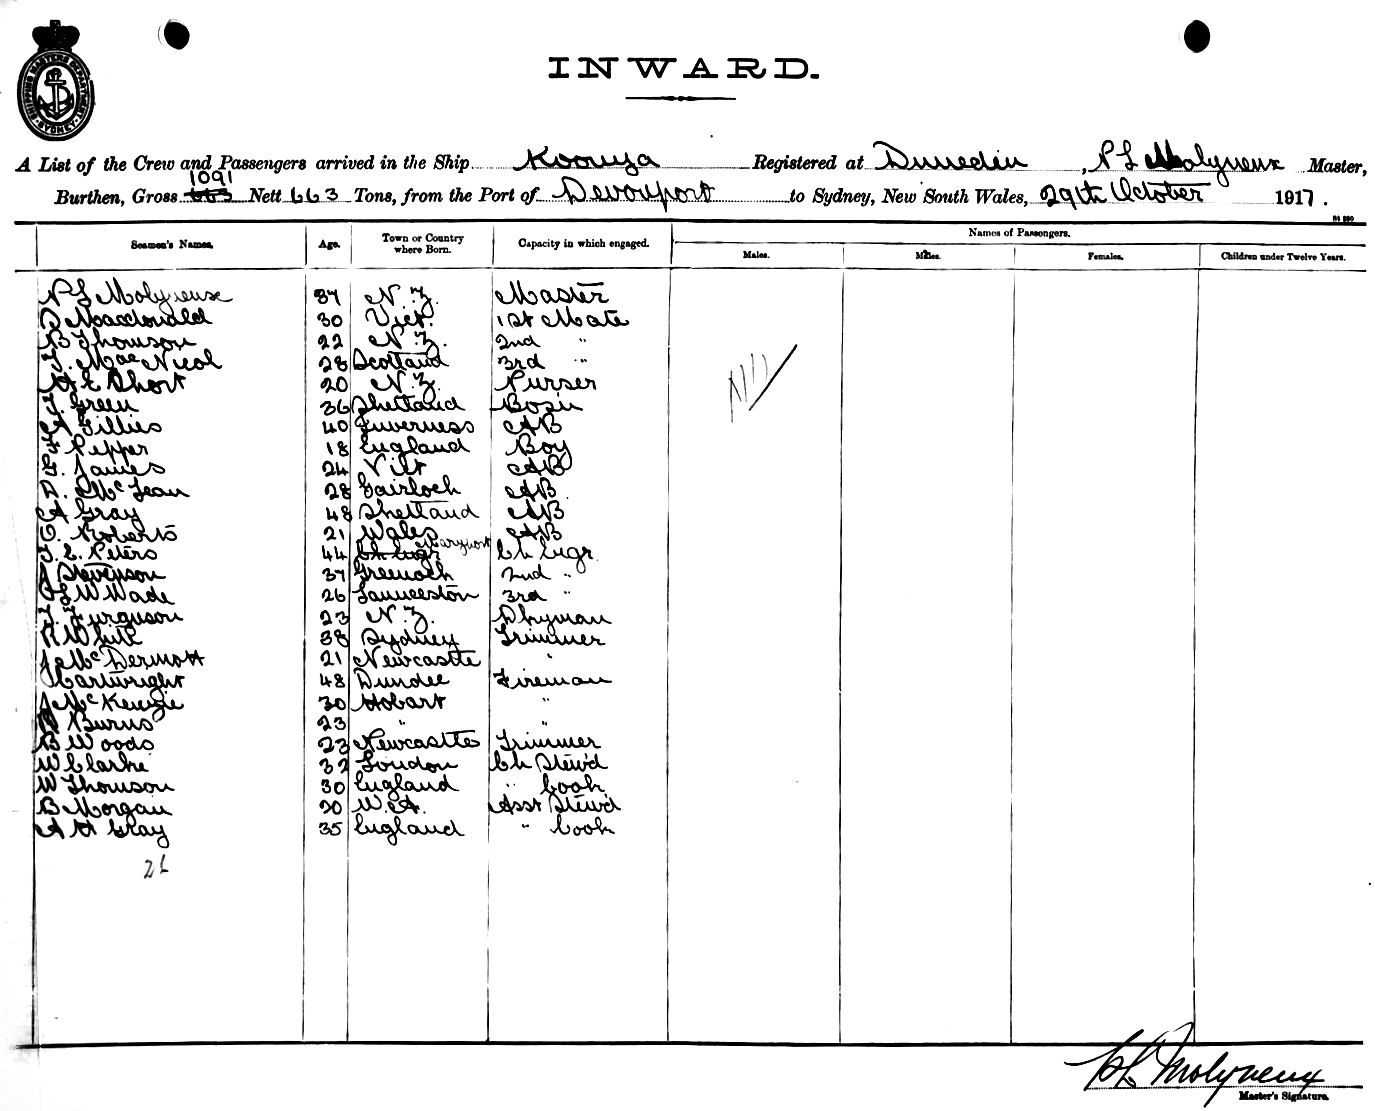 SHIPPING MASTERS DEPARTMENT SYDNEY
INWARD.
A List of the Crew and Passengers arrived in the Ship Koonya Registered at Dunedin, P L Molyneux Master,
1091
Burthen, Gross 663 Nett 663 Tons, from the Port of Devonport to Sydney, New South Wales, 29th October 1917.
Seamen's Names. Age. Town or Country where Born. Capacity in which engaged. Names of Passengers.
Males. Males. Females. Children under Twelve Years.
P L Molyneux 37 N.Z. Master
D Macdonald 30 Vict. 1st Mate
B Thomson 22 N.Z. 2nd "
J. MacNicol 28 Scotland 3rd "
H E Short 20 N.Z. Purser
J. Green 36 Shetland Bosn
A Gillies 40 Inverness AB
F Pepper 18 England Boy
G. James 24 Vict AB
D. McLean 28 Gairloch AB
A Gray 48 Shetland AB
O. Roberts 21 Wales AB
J. E. Peters 44 Ch Engr Maryport Ch Engr
J Stevenson 37 Greenock 2nd "
L W Wade 26 Launceston 3rd "
J Ferguson 23 N.Z. Dkyman
R White 38 Sydney Trimmer
J McDermott 21 Newcastle "
Cartwright 48 Dundee Fireman
J McKenzie 30 Hobart "
Burns 23 " "
B Woods 23 Newcastle Trimmer
W Clarke 32 London Ch Stew'd
W Thomson 30 England " Cook
B Morgan 20 W.A. Asst Stew'd
A H Gray 35 England " Cook
26
Nil
P L Molyneux
Master's Signature.